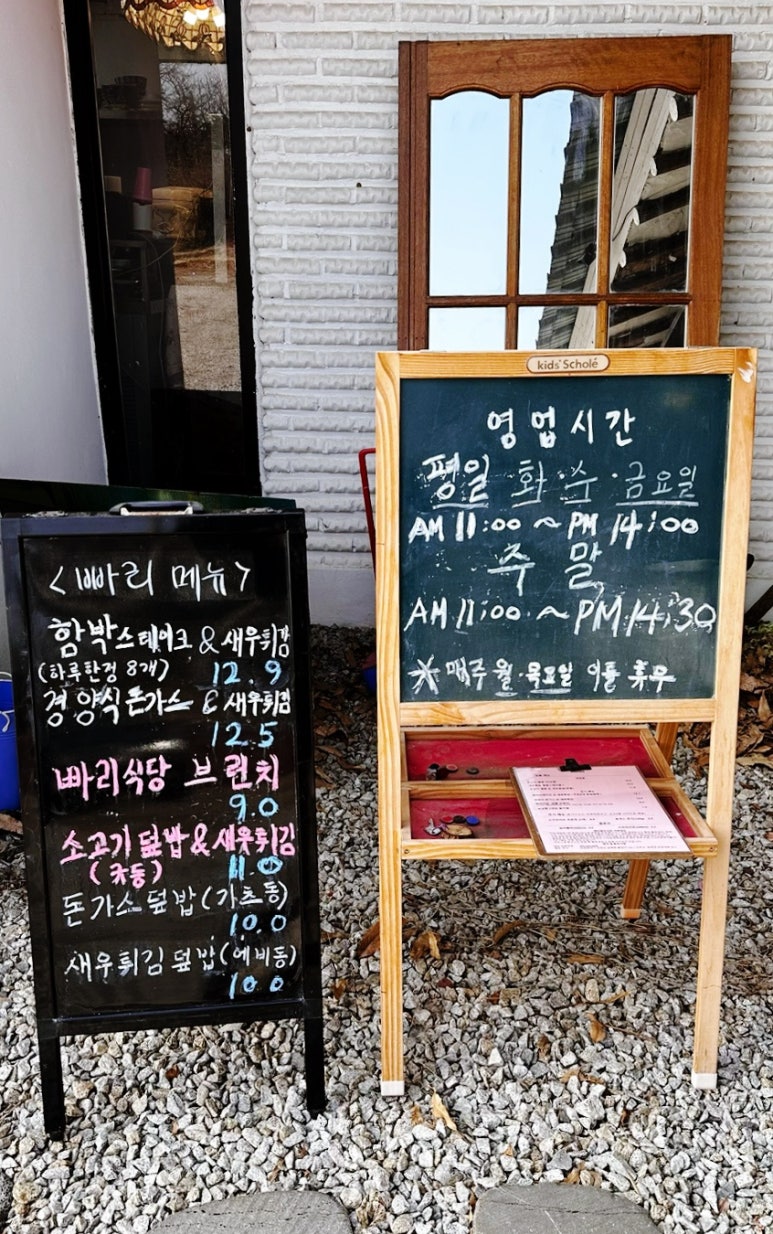 <빠리 메뉴>
함박스테이크 & 새우튀김
(하루한정 8개) 12.9
경양식 돈가스 & 새우튀김
12.5
빠리식당 브런치
9.0
소고기 덮밥 & 새우튀김
(규동) 11.0
돈가스 덮밥 (가츠동)
10.0
새우튀김 덮밥 (에비동)
10.0
kids' Scholé
영업시간
평일 화·수·금요일
AM 11:00 ~ PM 14:00
주말
AM 11:00 ~ PM 14:30
※ 매주 월·목요일 이틀 휴무